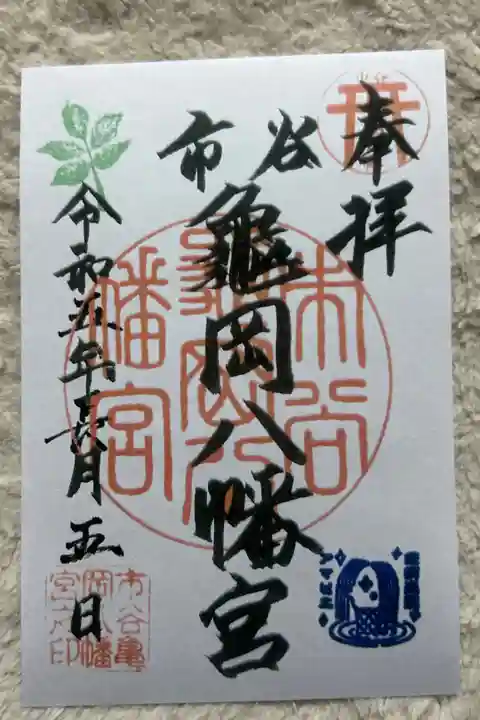 奉拝
市谷
龜岡八幡宮
市谷
龜岡八
幡宮
令和三年五月五日
市谷亀
岡八幡
宮之印
アマビエ